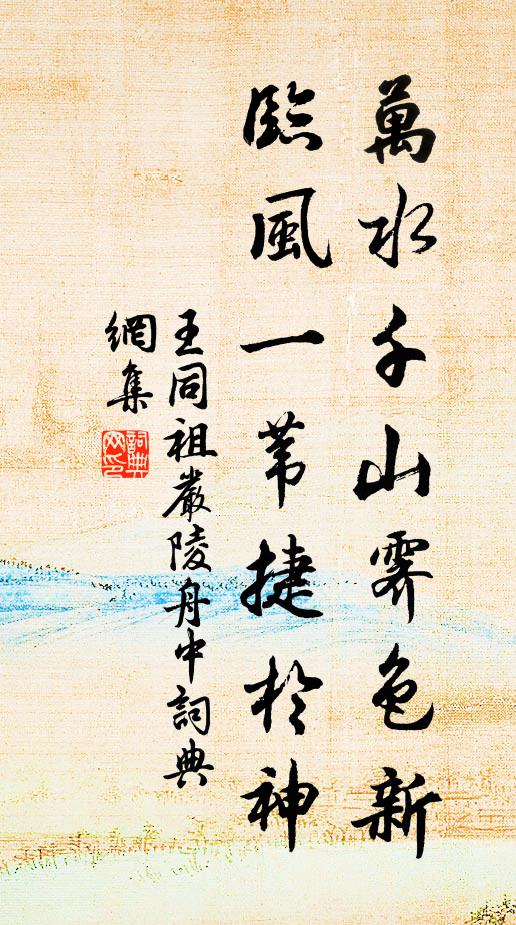 萬水千山霽色新
臨風一葦捷於神
王同祖嚴陵舟中詞典
網集
詞典網印